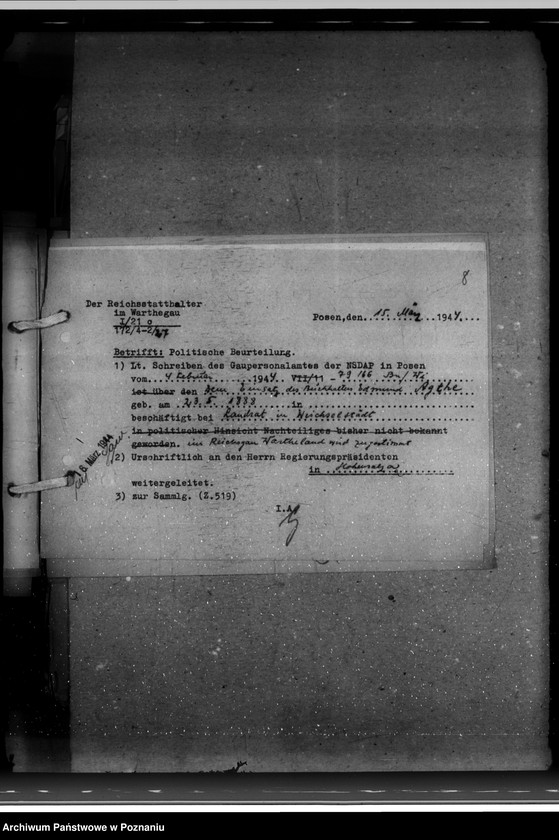 8
Der Reichsstatthalter
im Warthegau
I/21 o
172/4-2/27
Posen,den 15. März 1944
Betrifft: Politische Beurteilung.
1) Lt. Schreiben des Gaupersonalamtes der NSDAP in Posen
vom 4. Februar 1944 VII/11 - 79 166
ist über den Dem Einsatz des Buchhalters Edmund
geb. am 23.5.1888 in
beschäftigt bei Landrat in Weichselstädt
in politischer Hinsicht Nachteiliges bisher nicht bekannt
geworden. im Reichsgau Wartheland wird zugestimmt
18. März 1944
2) Urschriftlich an den Herrn Regierungspräsidenten
in Hohensalza
weitergeleitet.
3) zur Sammlg. (Z.519)
I.A.
Archiwum Państwowe w Poznaniu